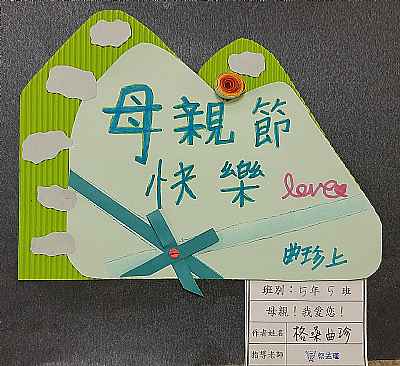 母親節
快樂
love
曲珍上
班別：5年5班
母親！我愛您！
作者姓名 格桑曲珍
指導老師